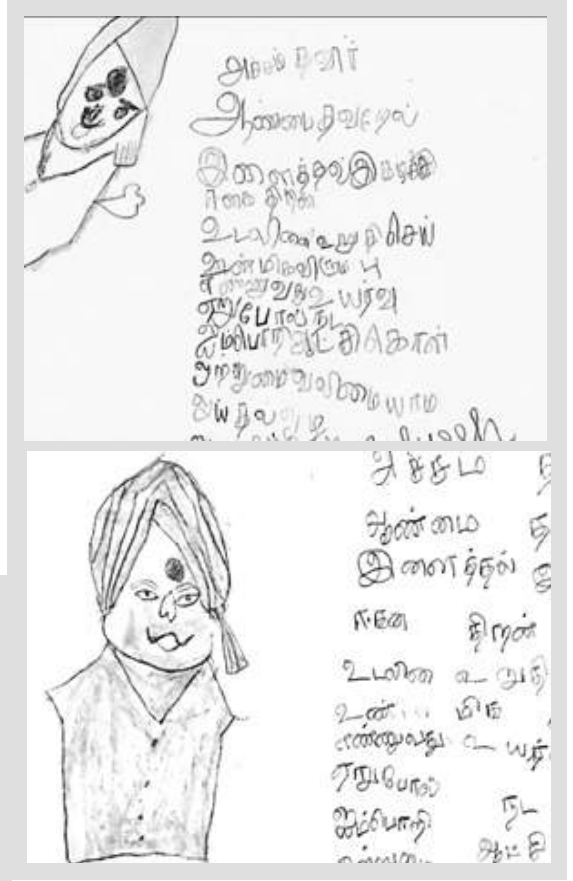 அச்சம் தவிர்
ஆண்மை தவறேல்
இளைத்தல் இகழ்ச்சி
ஈகை திறன்
உடலினை உறுதி செய்
ஊண் மிக விரும்பு
எண்ணுவது உயர்வு
ஏறுபோல் நட
ஐம்பொறி ஆட்சிகொள்
ஒற்றுமை வலிமையாம்
அச்சம்
ஆண்மை
இளைத்தல்
ஈகை திறன்
உடலினை உறுதி
உண் மிக
எண்ணுவது உயர்
ஏறுபோல் நட
ஐம்பொறி ஆட்சி